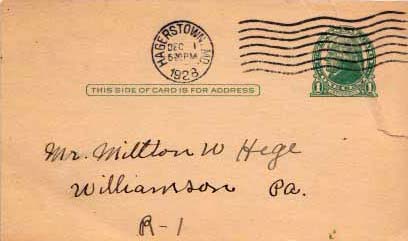 HAGERSTOWN, MD.
DEC 1
5 30 PM
1928
THIS SIDE OF CARD IS FOR ADDRESS
1 1
Mr. Millton W Hege
Williamson Pa.
R-1